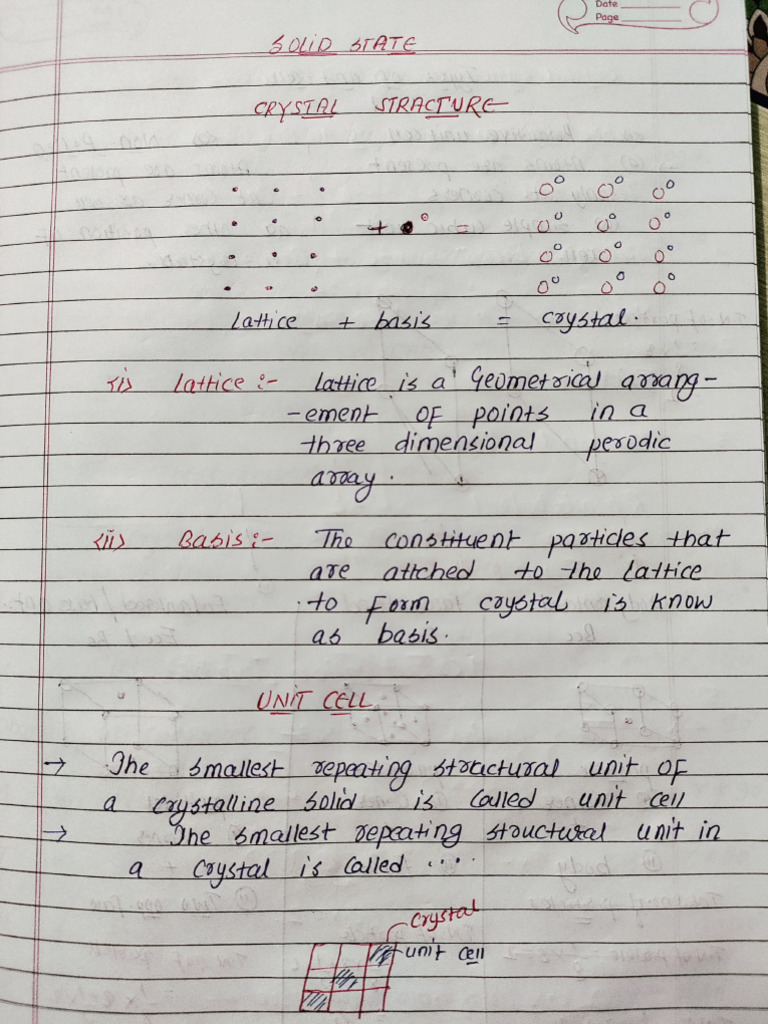 Date
Page
SOLID STATE
CRYSTAL STRACTURE
+ =
Lattice + basis = crystal.
(i) Lattice :- Lattice is a Geometrical arrang-
-ement OF points in a
three dimensional perodic
array.
(ii) Basis :- The constituent particles that
are attched to the Lattice
to Form crystal is know
as basis.
UNIT CELL
→ The smallest repeating stractural unit OF
a crystalline solid is called unit cell
→ The smallest repeating structural unit in
a crystal is called ....
crystal
unit cell